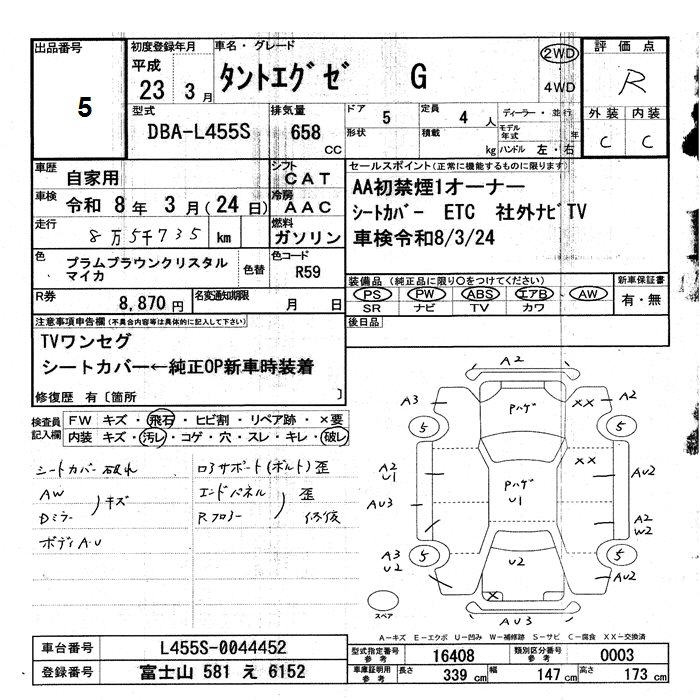 出品番号
5
初度登録年月
平成
23 3月
車名・グレード
タントエグゼ G
2WD
4WD
評価点
R
外装 内装
C C
型式
DBA-L455S
排気量
658 CC
ドア 5
形状
定員 4 人
積載 kg
ディーラー・並行
モデル年式 年
ハンドル 左・右
車歴 自家用
シフト CAT
車検 令和 8年 3月(24日)
冷房 AAC
走行 8万5千735 km
燃料 ガソリン
色 プラムブラウンクリスタルマイカ
色替
色コード R59
R券 8,870円
名変通知期限 月 日
セールスポイント(正常に機能するものに限ります)
AA初禁煙1オーナー
シートカバー ETC 社外ナビTV
車検令和8/3/24
装備品(純正品に限り〇をつけてください)
PS PW ABS エアB AW
SR ナビ TV カワ
新車保証書
有・無
後日品
注意事項申告欄(不具合内容等は具体的に記入して下さい)
TVワンセグ
シートカバー←純正OP新車時装着
修復歴 有〔箇所 〕
検査員記入欄
FW キズ・飛石・ヒビ割・リペア跡・×要
内装 キズ・汚レ・コゲ・穴・スレ・キレ・破レ
シートカバー破れ
AW
Dミラー )キズ
ボディA・U
ロアサポート(ボルト)歪
エンドパネル
Rフロアー )歪 修復
A2
A3
××
A2
Pハゲ
5
5
A2
U1
××
AU2
AU3
Pハゲ
U1
A2
W2
A3
U2
5
5
U2
AU2
×
スペア
AU3
A-キズ E-エクボ U-凹み W-補修跡 S-サビ C-腐食 XX-交換済
車台番号 L455S-0044452
登録番号 富士山 581 え 6152
型式指定番号 参考 16408
類別区分番号 参考 0003
車庫証明用 参考 長さ 339 cm 幅 147 cm 高さ 173 cm